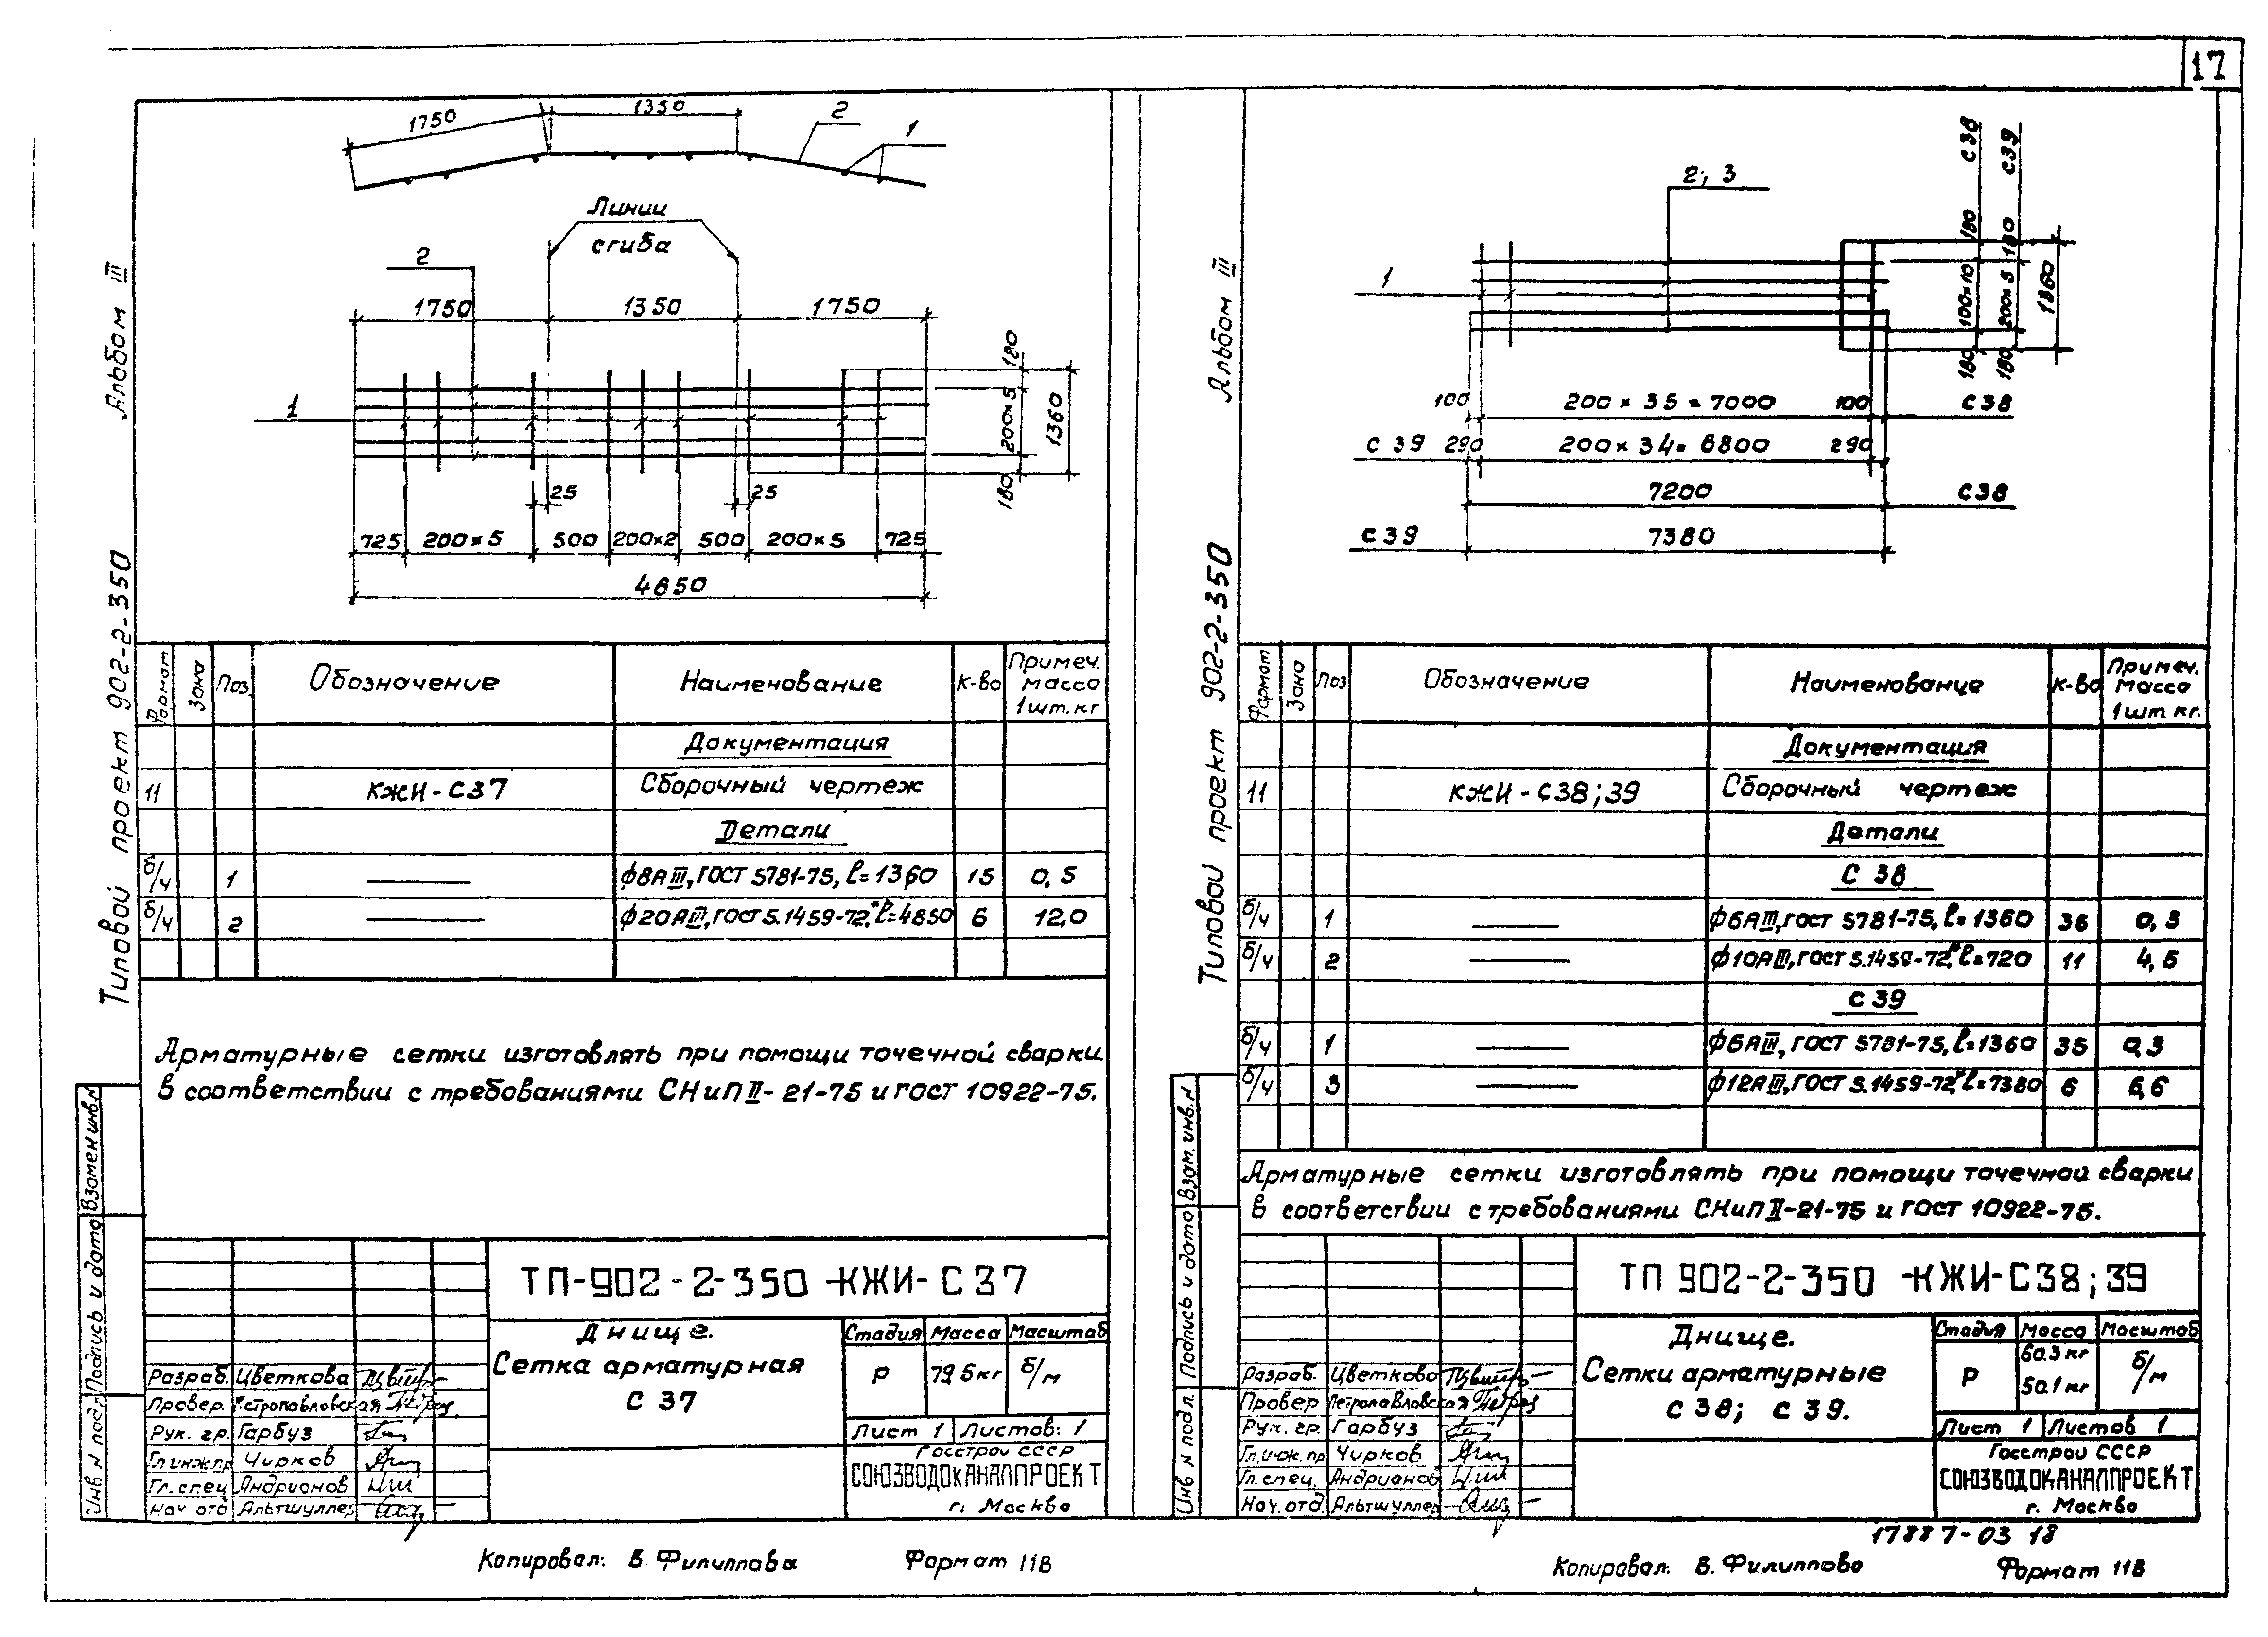 17
Типовой проект 902-2-350 Альбом III
1750
1350
2
1
Линии
сгиба
2
1750 1350 1750
1
180
200×5
180
1360
25 25
725 200×5 500 200×2 500 200×5 725
4850
Формат Зона Поз. Обозначение Наименование К-во Примеч. масса 1шт. кг
Документация
11 КЖИ-С37 Сборочный чертеж
Детали
б/ч 1 ф8АIII, ГОСТ 5781-75, ℓ=1360 15 0,5
б/ч 2 ф20АIII, ГОСТ 5.1459-72,* ℓ=4850 6 12,0
Арматурные сетки изготовлять при помощи точечной сварки
в соответствии с требованиями СНиП II-21-75 и ГОСТ 10922-75.
Взамен инв.N
Подпись и дата
Инв N подл.
ТП-902-2-350-КЖИ-С37
Днище.
Сетка арматурная
С 37
Стадия Масса Масштаб
Р 79,5кг б/м
Лист 1 Листов: 1
Госстрой СССР
СОЮЗВОДОКАНАЛПРОЕКТ
г. Москва
Разраб. Цветкова
Провер. Петропавловская
Рук. гр. Гарбуз
Гл инж.пр Чирков
Гл. спец Андрианов
Нач отд Альтшуллер
Копировал: В. Филиппова Формат 11В
Типовой проект 902-2-350 Альбом III
2; 3
1
С38
С39
180 180
100×10 200×5 1360
180 180
100 200×35=7000 100 С38
С39 290 200×34=6800 290
7200 С38
С39 7380
Формат Зона Поз Обозначение Наименование К-во Примеч. масса 1шт. кг.
Документация
11 КЖИ-С38;39 Сборочный чертеж
Детали
С 38
б/ч 1 ф6АIII, ГОСТ 5781-75, ℓ=1360 36 0,3
б/ч 2 ф10АIII, ГОСТ 5.1459-72,* ℓ=720 11 4,5
С 39
б/ч 1 ф6АIII, ГОСТ 5781-75, ℓ=1360 35 0,3
б/ч 3 ф12АIII, ГОСТ 5.1459-72,* ℓ=7380 6 6,6
Арматурные сетки изготовлять при помощи точечной сварки
в соответствии с требованиями СНиП II-21-75 и ГОСТ 10922-75.
Взам. инв.N
Подпись и дата
Инв N подл.
ТП 902-2-350 -КЖИ-С38;39
Днище.
Сетки арматурные
С 38; С 39.
Стадия Масса Масштаб
Р 60.3 кг 50.1 кг б/м
Лист 1 Листов 1
Госстрой СССР
СОЮЗВОДОКАНАЛПРОЕКТ
г. Москва
Разраб. Цветкова
Провер Петропавловская
Рук. гр. Гарбуз
Гл.инж. пр Чирков
Гл. спец. Андрианов
Нач. отд. Альтшуллер
17887-03 18
Копировал: В. Филиппова Формат 11В